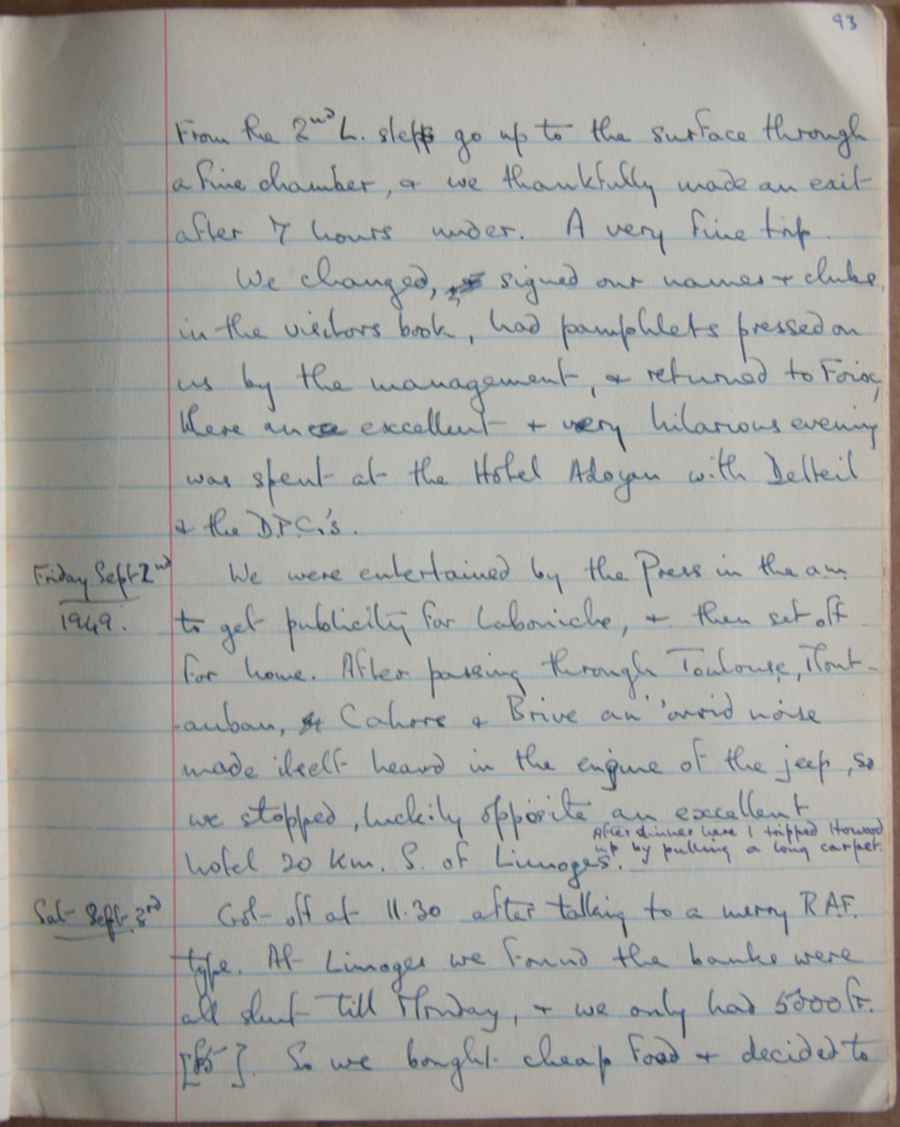 93
From the 2nd L. steps go up to the surface through
a fine chamber, & we thankfully made an exit
after 7 hours under. A very fine trip.
We changed, signed our names & clubs
in the visitors book, had pamphlets pressed on
us by the management, & returned to Foix,
where an excellent & very hilarious evening
was spent at the Hotel Adoyan with Delteil
& the D.P.C.'s.
Friday Sept 2nd
1949.
We were entertained by the Press in the am
to get publicity for Labouiche, & then set off
for home. After passing through Toulouse, Mont-
-auban, Cahors & Brive an 'orrid noise
made itself heard in the engine of the jeep, so
we stopped, luckily opposite an excellent
hotel 20 Km. S. of Limoges.
After dinner here I tripped Howard
up by pulling a long carpet.
Sat Sept. 3rd
Got off at 11.30 after talking to a merry RAF.
type. At Limoges we found the banks were
all shut till Monday, & we only had 5000 fr.
[£5]. So we bought cheap food & decided to